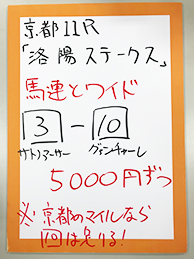 京都11R
「洛陽ステークス」
馬連とワイド
3 - 10
サトノアーサー グァンチャーレ
5000円ずつ
※京都のマイルなら
1回は走る!